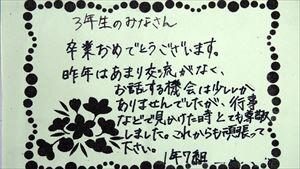 3年生のみなさん
卒業おめでとうございます。
昨年はあまり交流がなく、
お話する機会は少ししか
ありませんでしたが、行事
などで見かけた時とても尊敬
しました。これからも頑張って
下さい。
1年7組